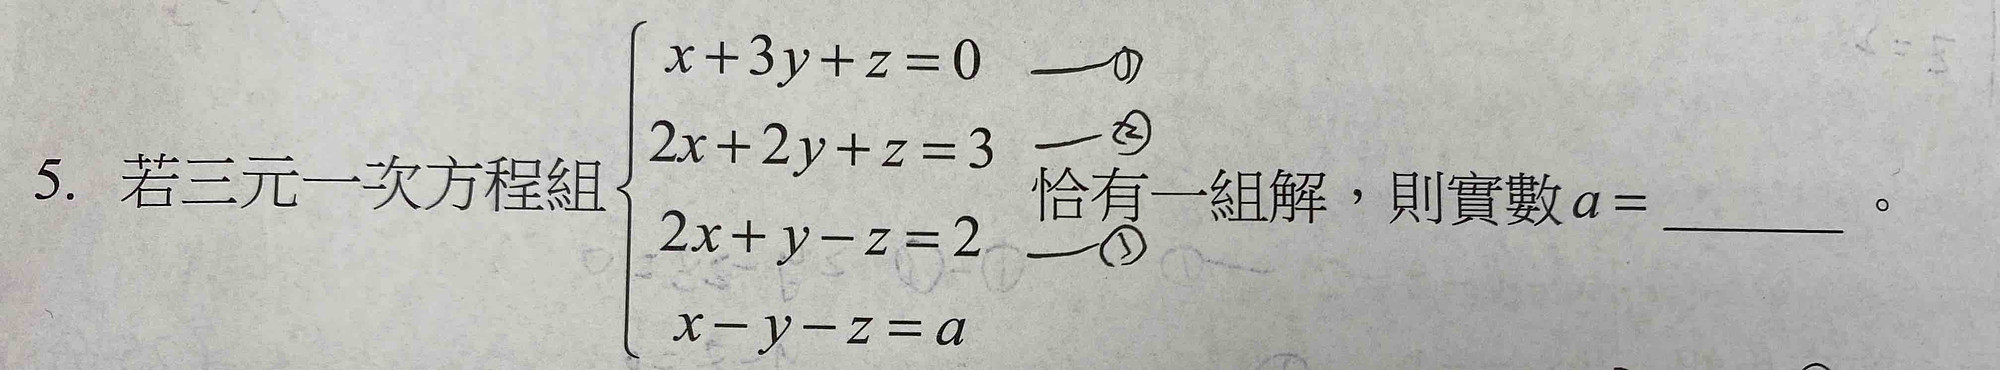 x+3y+z=0 —①
2x+2y+z=3 —②
5. 若三元一次方程組 恰有一組解，則實數a=______。
2x+y−z=2 —③
x−y−z=a